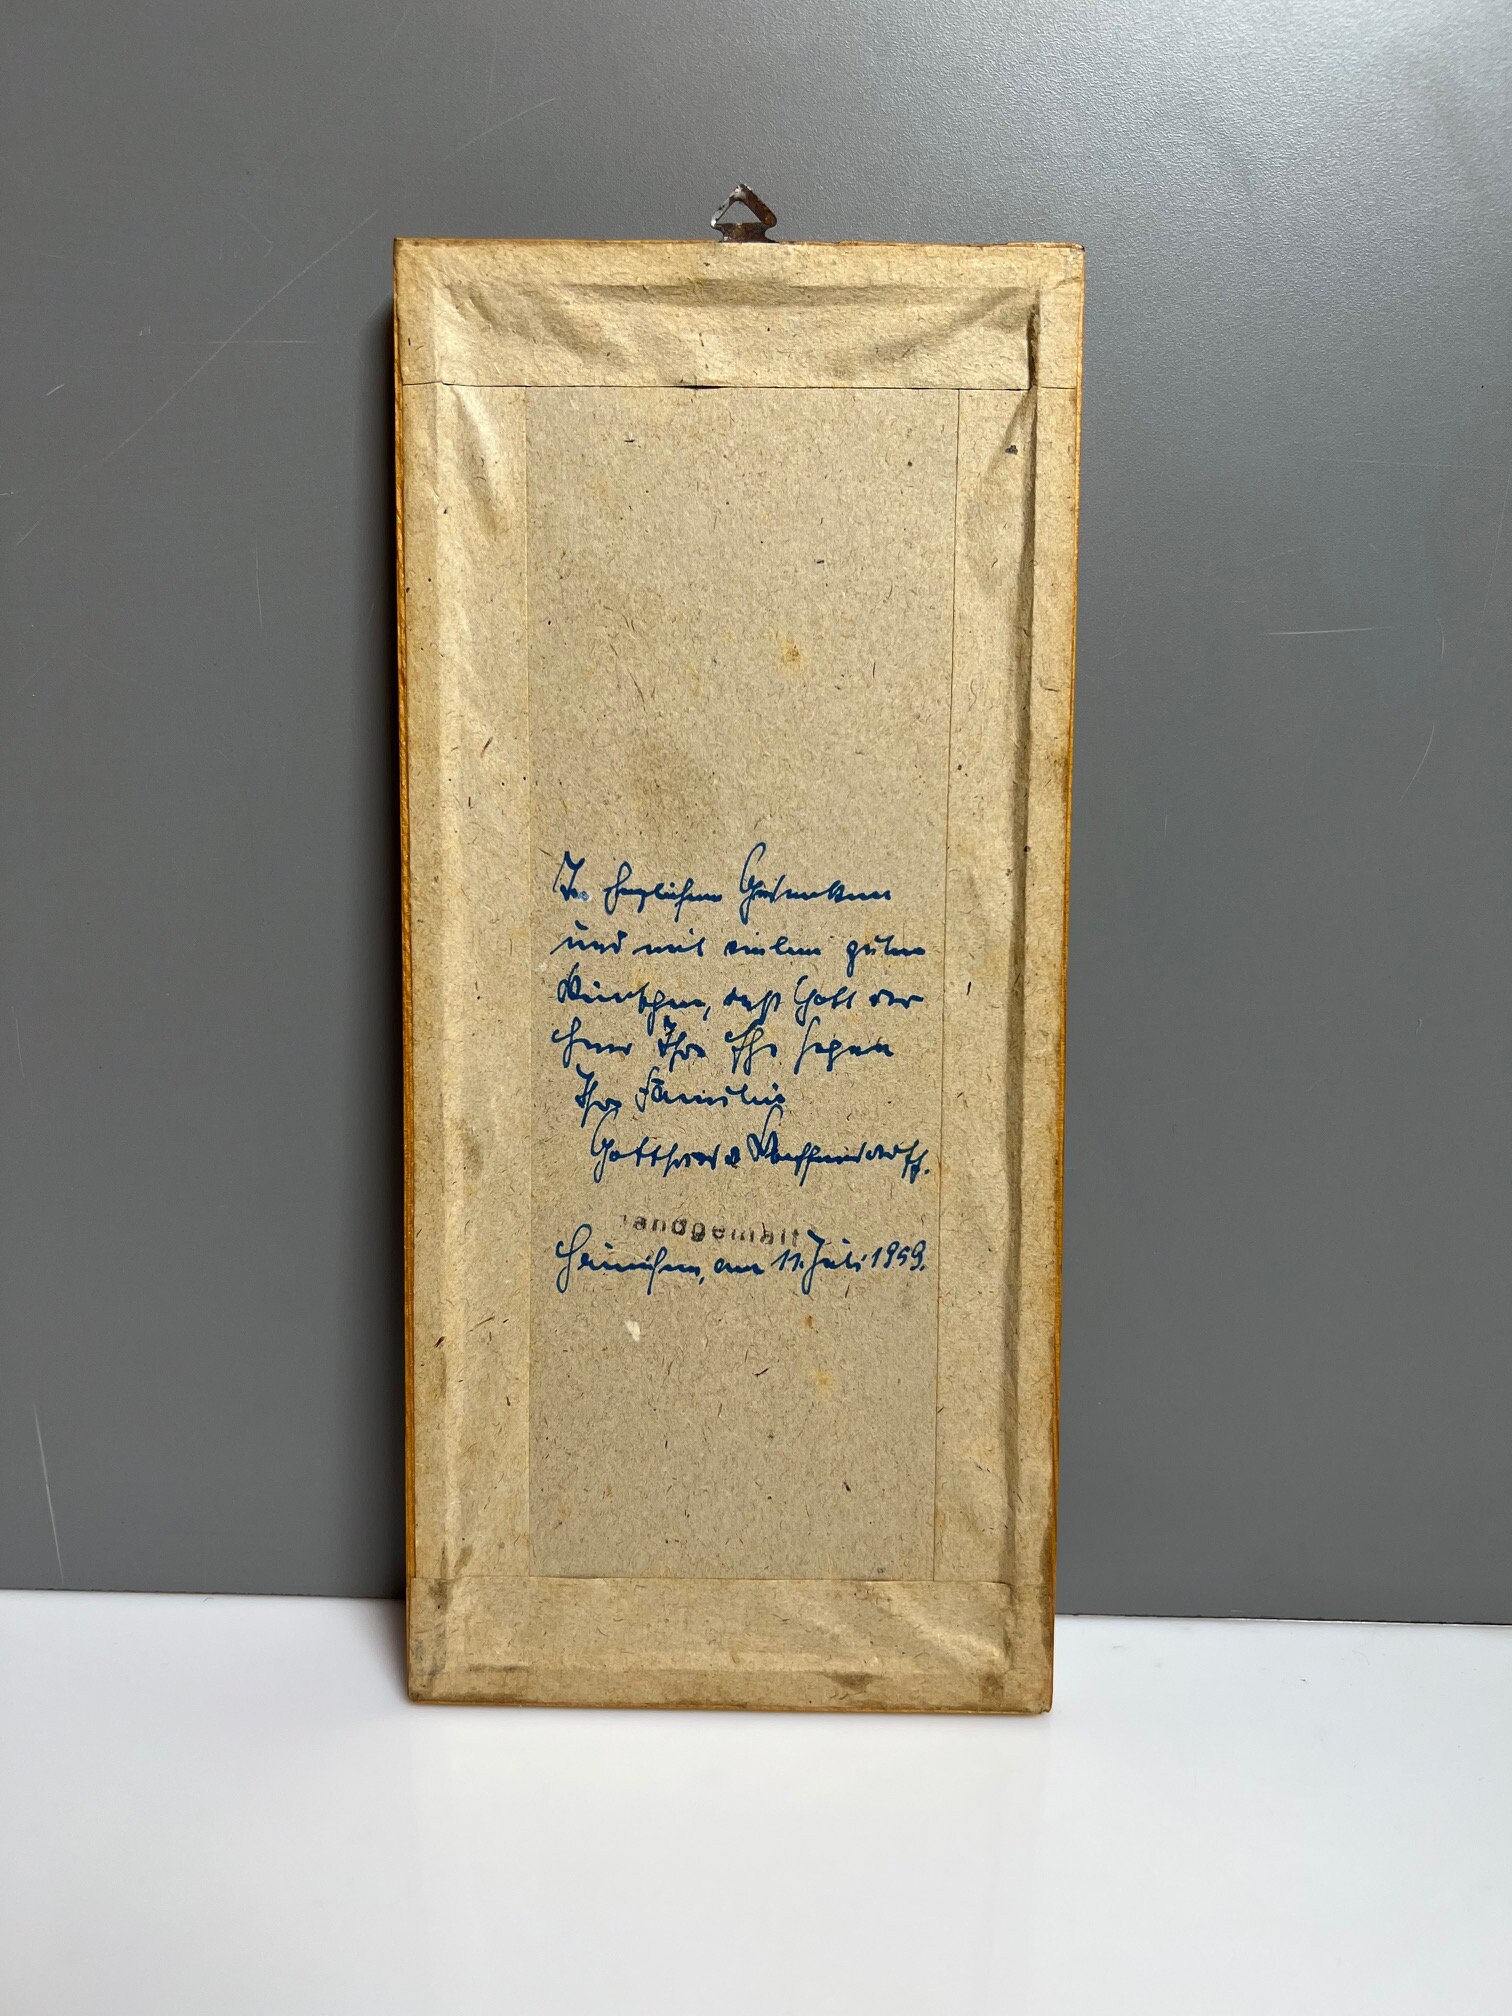 In herzlichem Gedenken
und mit vielen guten
Wünschen, daß Gott der
Herr Ihre Ehe segne
Ihre Familie
Gotthard
andgemalt
Hainichen, am 11. Juli 1959.